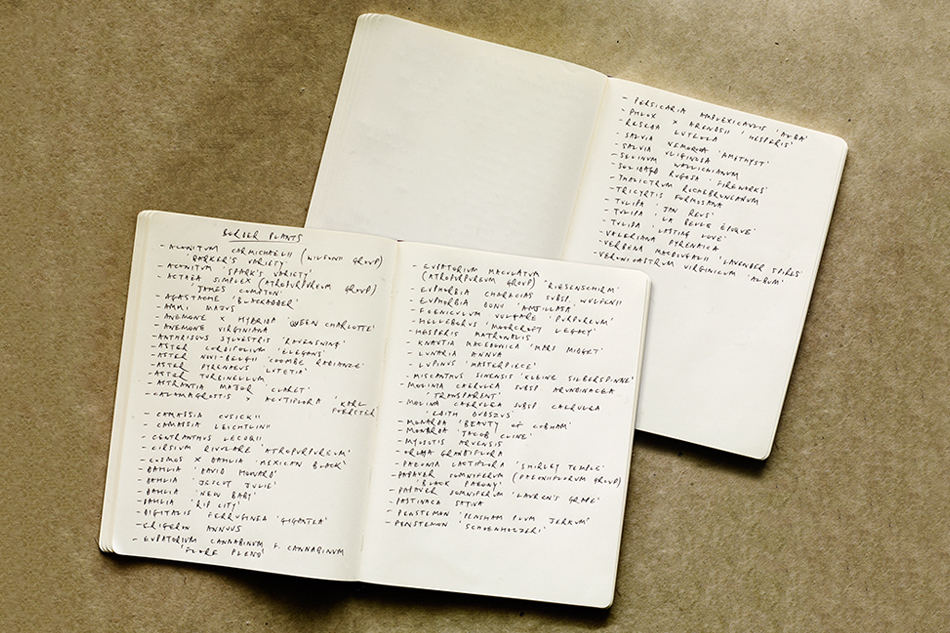 BORDER PLANTS
- ACONITUM CARMICHAELII (WILSONII GROUP)
'BARKER'S VARIETY'
- ACONITUM 'SPARK'S VARIETY'
- ACTAEA SIMPLEX (ATROPURPUREUM GROUP)
'JAMES COMPTON'
- AGASTACHE 'BLACKADDER'
- AMMI MAJUS
- ANEMONE X HYBRIDA 'QUEEN CHARLOTTE'
- ANEMONE VIRGINIANA
- ANTHRISCUS SYLVESTRIS 'RAVENSWING'
- ASTER CORDIFOLIUM 'ELEGANS'
- ASTER NOVI-BELGII 'COOMBE RADIANCE'
- ASTER PYRENAEUS 'LUTETIA'
- ASTER TURBINELLUM
- ASTRANTIA MAJOR 'CLARET'
- CALAMAGROSTIS X ACUTIFLORA 'KARL
FOERSTER'
- CAMASSIA CUSICKII
- CAMASSIA LEICHTLINII
- CENTRANTHUS LECOQII
- CIRSIUM RIVULARE 'ATROPURPUREUM'
- COSMOS X DAHLIA 'MEXICAN BLACK'
- DAHLIA 'DAVID HOWARD'
- DAHLIA 'JESCOT JULIE'
- DAHLIA 'NEW BABY'
- DAHLIA 'RIP CITY'
- DIGITALIS FERRUGINEA 'GIGANTEA'
- ERIGERON ANNUUS
- EUPATORIUM CANNABINUM F. CANNABINUM
'FLORE PLENO'
- EUPATORIUM MACULATUM
(ATROPURPUREUM GROUP) 'RIESENSCHIRM'
- EUPHORBIA CHARACIAS SUBSP. WULFENII
- EUPHORBIA DONII 'AMJILASSA'
- FOENICULUM VULGARE 'PURPUREUM'
- HELLEBORUS 'MOORCROFT LEGACY'
- HESPERIS MATRONALIS
- KNAUTIA MACEDONICA 'MARS MIDGET'
- LUNARIA ANNUA
- LUPINUS 'MASTERPIECE'
- MISCANTHUS SINENSIS 'KLEINE SILBERSPINNE'
- MOLINIA CAERULEA SUBSP. ARUNDINACEA
'TRANSPARENT'
- MOLINA CAERULEA SUBSP. CAERULEA
'EDITH DUDSZUS'
- MONARDA 'BEAUTY OF COBHAM'
- MONARDA 'JACOB CLINE'
- MYOSOTIS ARVENSIS
- ORLAYA GRANDIFLORA
- PAEONIA LACTIFLORA 'SHIRLEY TEMPLE'
- PAPAVER SOMNIFERUM (PAEONIFLORUM GROUP)
'BLACK PAEONY'
- PAPAVER SOMNIFERUM 'LAUREN'S GRAPE'
- PASTINACA SATIVA
- PENSTEMON 'PENSHAM PLUM JERKUM'
- PENSTEMON 'SCHOENHOLZERI'
- PERSICARIA AMPLEXICAULIS 'ALBA'
- PHLOX X ARENDSII 'HESPERIS'
- RESEDA LUTEOLA
- SALVIA NEMOROSA 'AMETHYST'
- SALVIA ULIGINOSA
- SELINUM WALLICHIANUM
- SOLIDAGO RUGOSA 'FIREWORKS'
- THALICTRUM ROCHEBRUNEANUM
- TRICYRTIS FORMOSANA
- TULIPA 'JAN REUS'
- TULIPA 'LA BELLE ÉPOQUE'
- TULIPA 'LASTING LOVE'
- VALERIANA PYRENAICA
- VERBENA MACDOUGALII 'LAVENDER SPIRES'
- VERONICASTRUM VIRGINICUM 'ALBUM'